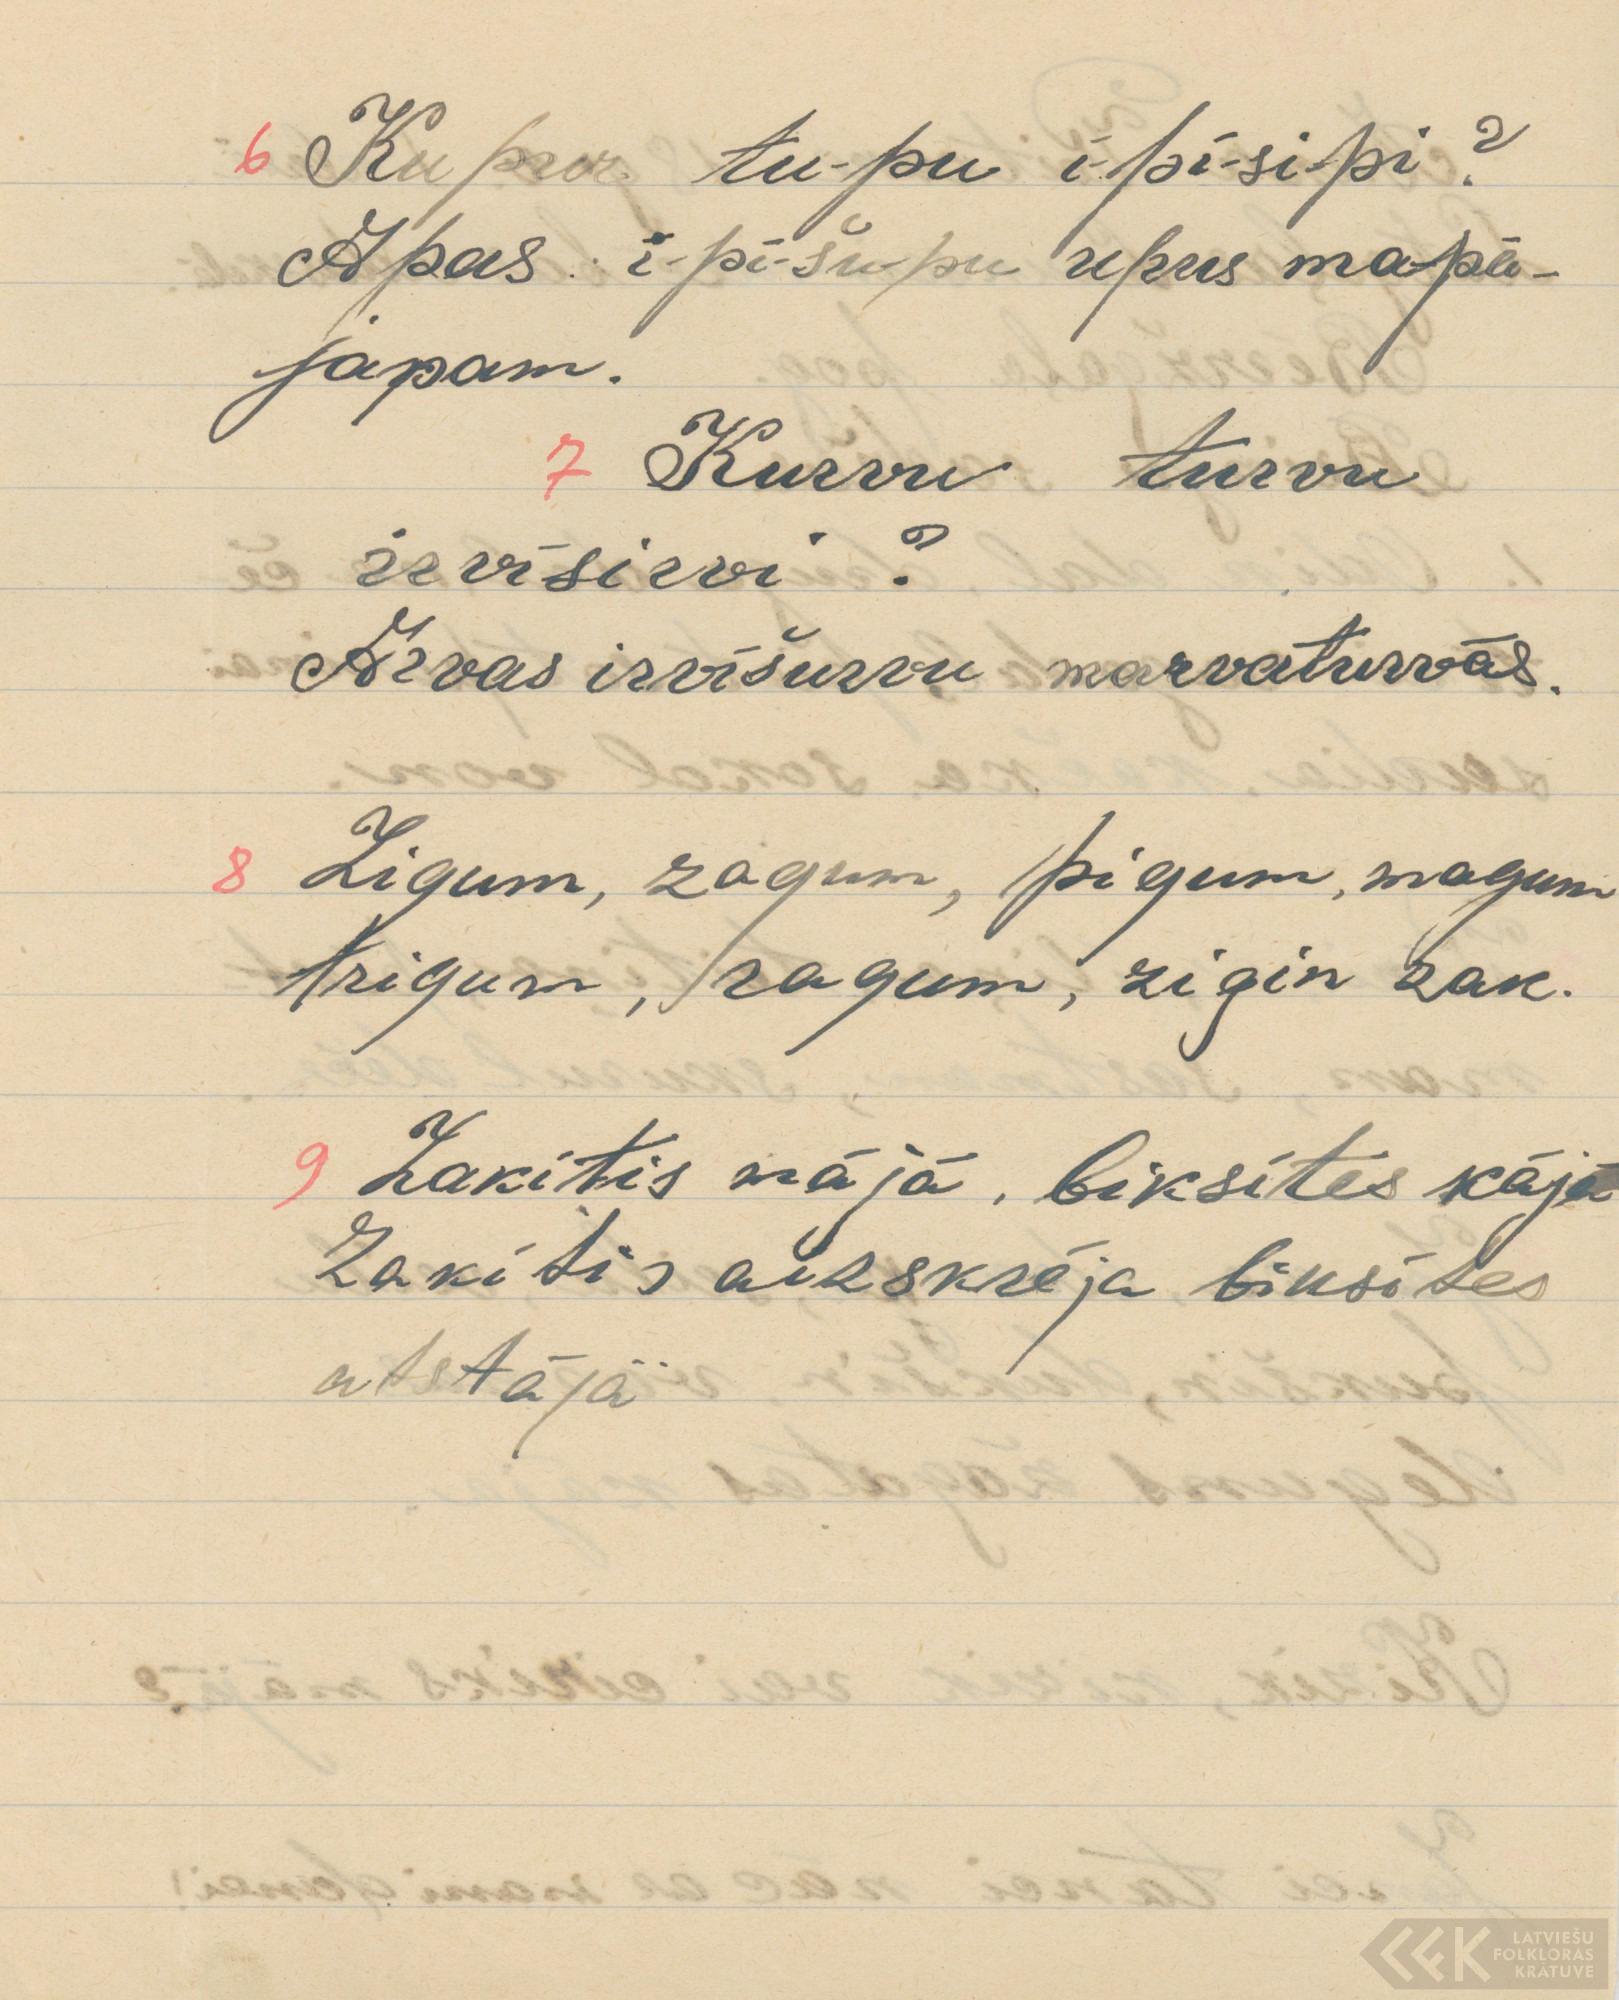 6 Ku pur tu-pu i-pi-si-pi?
Apas i-pi-šu-pu upus ma-pā-
japam.
7 Kurvu turvu
irvīsirvi?
Arvas irvīšurvu marvaturvās.
8 Zigum, zagum, pigum, magum
trigum, ragum, zigin zak.
9 Zakītis mājā, biksītes kājā
Zakītis aizskrēja biksītes
atstājā
LATVIEŠU
FOLKLORAS
KRĀTUVE